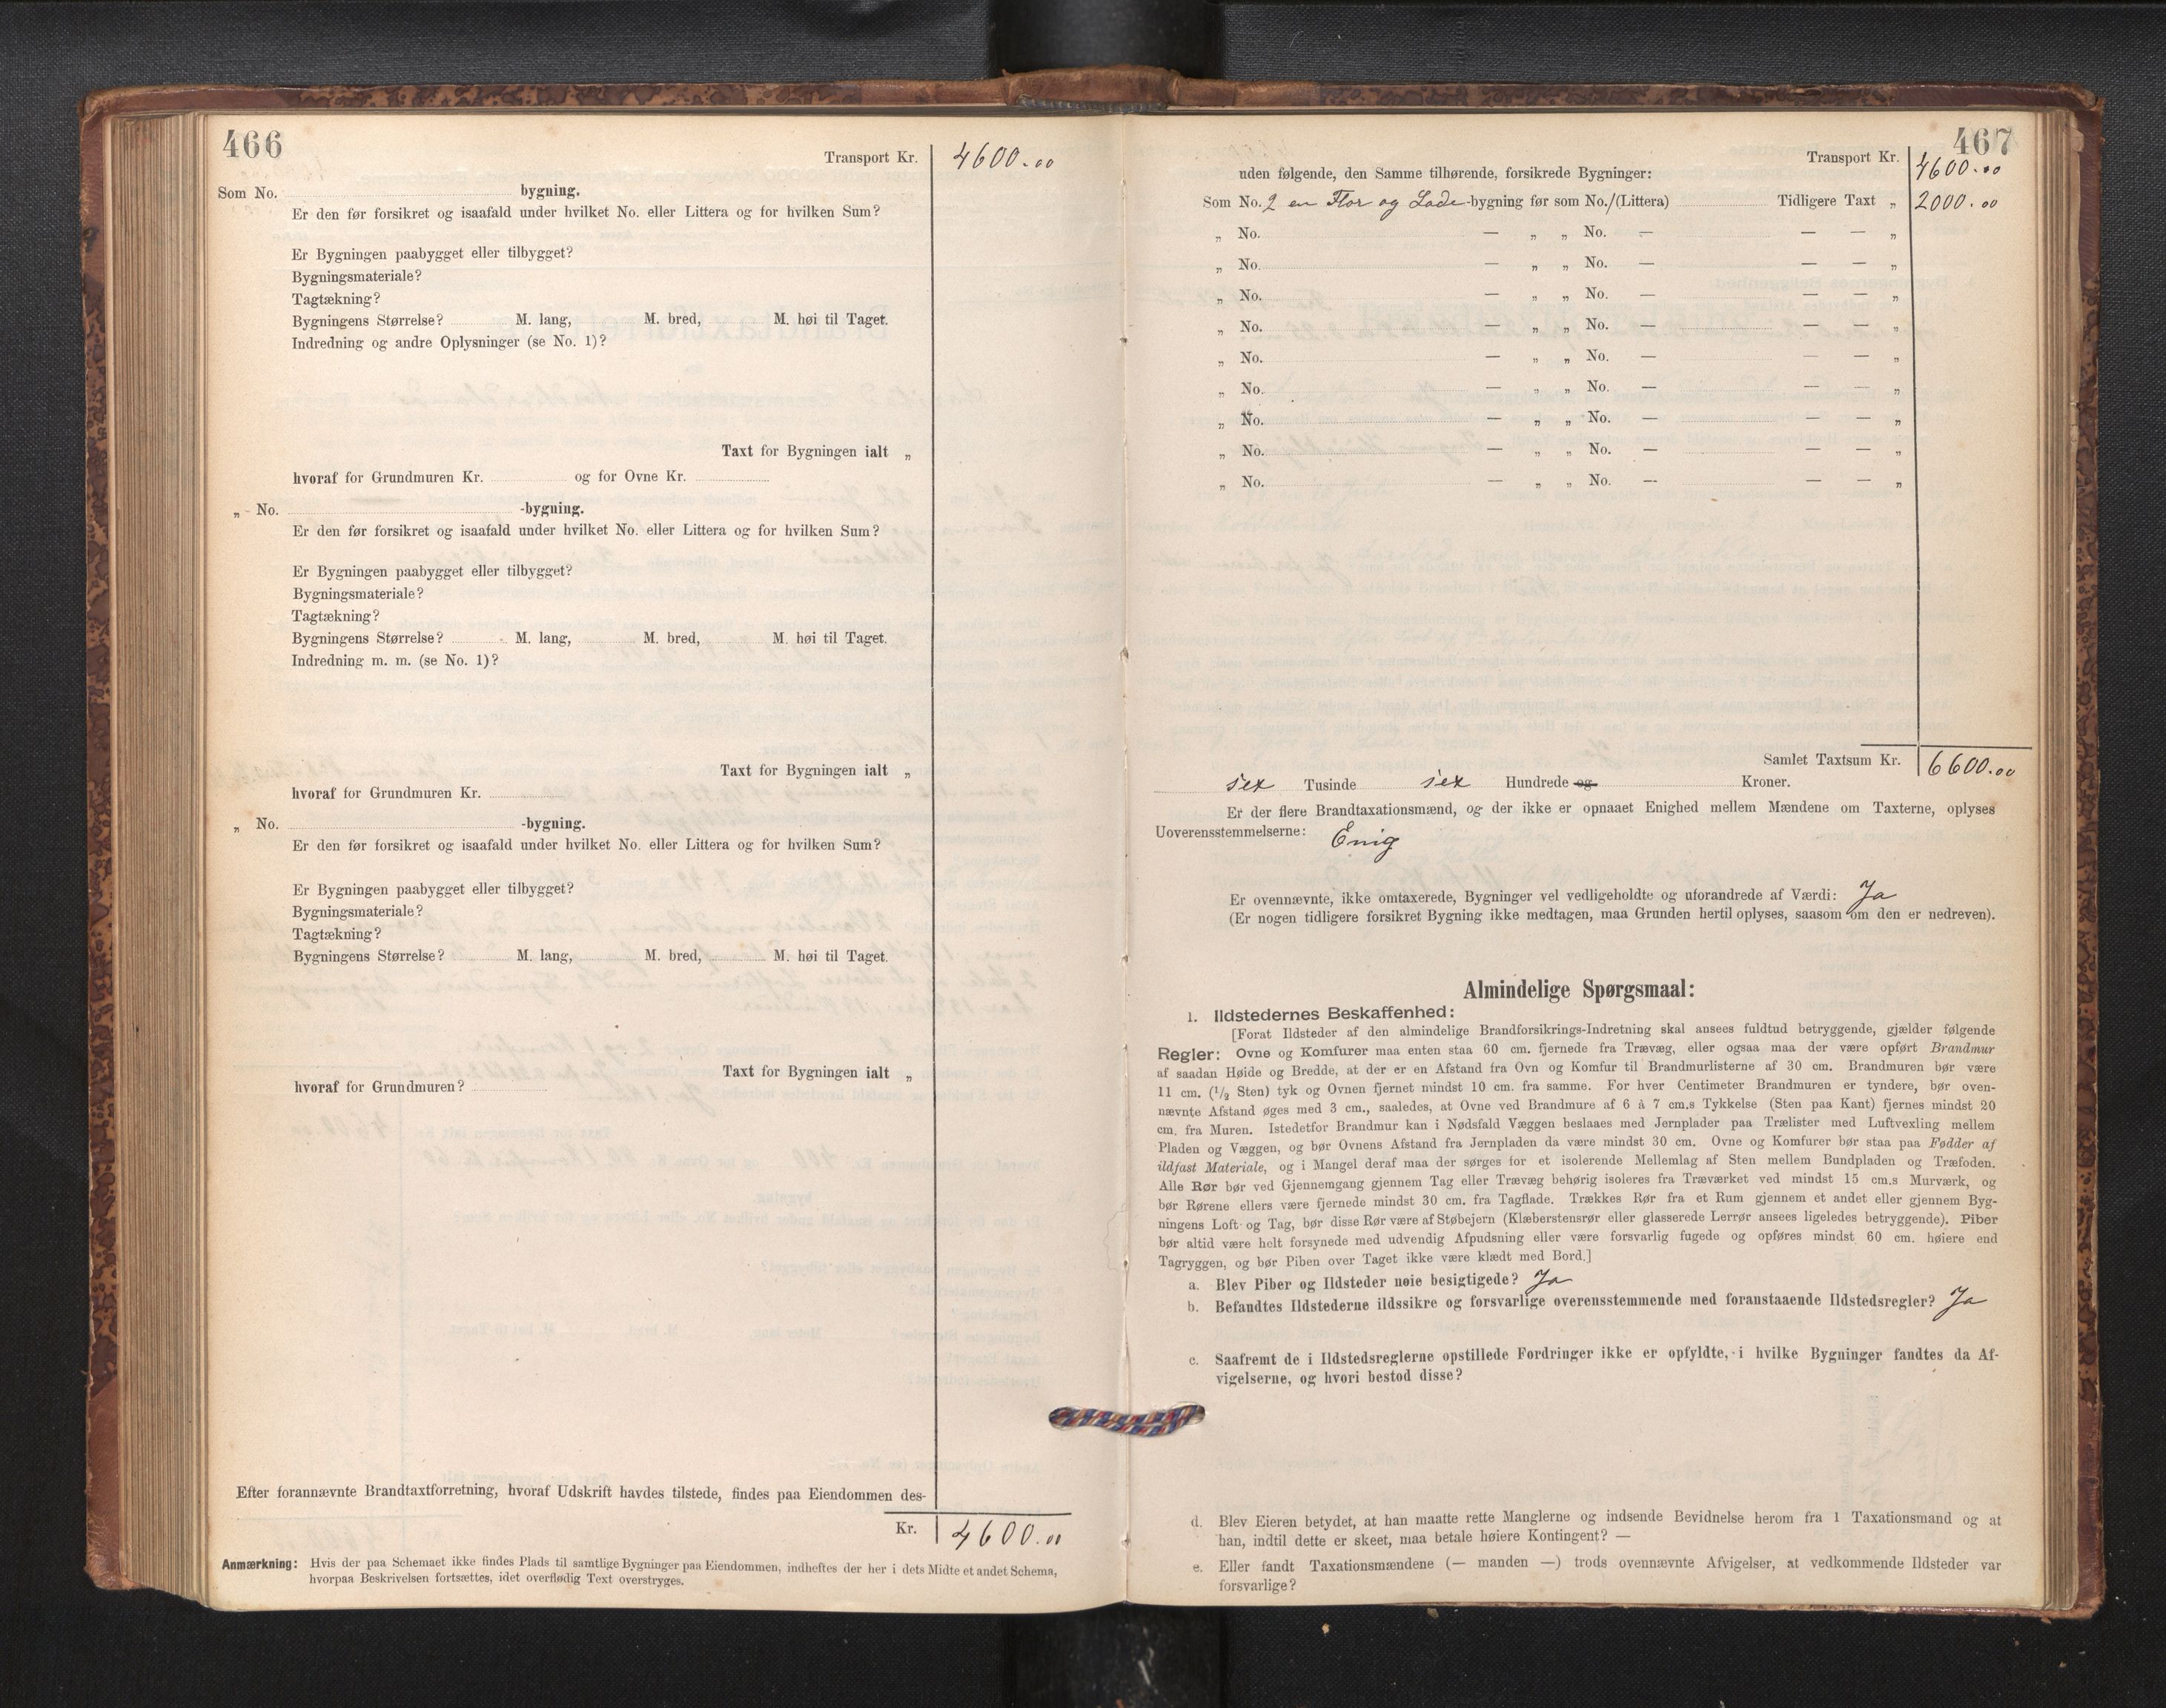 466
Transport Kr. 4600.00
Som No. bygning.
Er den før forsikret og isaafald under hvilket No. eller Littera og for hvilken Sum?
Er Bygningen paabygget eller tilbygget?
Bygningsmateriale?
Tagtækning?
Bygningens Størrelse? M. lang, M. bred, M. høi til Taget.
Indredning og andre Oplysninger (se No. 1)?
Taxt for Bygningen ialt „
hvoraf for Grundmuren Kr. og for Ovne Kr.
„ No. -bygning.
Er den før forsikret og isaafald under hvilket No. eller Littera og for hvilken Sum?
Er Bygningen paabygget eller tilbygget?
Bygningsmateriale?
Tagtækning?
Bygningens Størrelse? M. lang, M. bred, M. høi til Taget.
Indredning m. m. (se No. 1)?
Taxt for Bygningen ialt „
hvoraf for Grundmuren Kr.
„ No. -bygning.
Er den før forsikret og isaafald under hvilket No. eller Littera og for hvilken Sum?
Er Bygningen paabygget eller tilbygget?
Bygningsmateriale?
Tagtækning?
Bygningens Størrelse? M. lang, M. bred, M. høi til Taget.
Taxt for Bygningen ialt „
hvoraf for Grundmuren?
Efter forannævnte Brandtaxtforretning, hvoraf Udskrift havdes tilstede, findes paa Eiendommen des-
Kr. 4600.00
Anmærkning: Hvis der paa Schemaet ikke findes Plads til samtlige Bygninger paa Eiendommen, indheftes der her i dets Midte et andet Schema,
hvorpaa Beskrivelsen fortsættes, idet overflødig Text overstryges.
467
Transport Kr. 4600.00
uden følgende, den Samme tilhørende, forsikrede Bygninger:
Som No. 2 en Flor og Lade-bygning før som No./(Littera) Tidligere Taxt „ 2000.00
„ No. — „ „ No. — — — „
„ No. — „ „ No. — — — „
„ No. — „ „ No. — — — „
„ No. — „ „ No. — — — „
„ No. — „ „ No. — — — „
„ No. — „ „ No. — — — „
„ No. — „ „ No. — — — „
„ No. — „ „ No. — — — „
„ No. — „ „ No. — — — „
Samlet Taxtsum Kr. 6600.00
sex Tusinde sex Hundrede og Kroner.
Er der flere Brandtaxationsmænd, og der ikke er opnaaet Enighed mellem Mændene om Taxterne, oplyses
Uoverensstemmelserne: Enig
Er ovennævnte, ikke omtaxerede, Bygninger vel vedligeholdte og uforandrede af Værdi: Ja
(Er nogen tidligere forsikret Bygning ikke medtagen, maa Grunden hertil oplyses, saasom om den er nedreven).
Almindelige Spørgsmaal:
1. Ildstedernes Beskaffenhed:
[Forat Ildsteder af den almindelige Brandforsikrings-Indretning skal ansees fuldtud betryggende, gjælder følgende
Regler: Ovne og Komfurer maa enten staa 60 cm. fjernede fra Trævæg, eller ogsaa maa der være opført Brandmur
af saadan Høide og Bredde, at der er en Afstand fra Ovn og Komfur til Brandmurlisterne af 30 cm. Brandmuren bør være
11 cm. (1/2 Sten) tyk og Ovnen fjernet mindst 10 cm. fra samme. For hver Centimeter Brandmuren er tyndere, bør oven-
nævnte Afstand øges med 3 cm., saaledes, at Ovne ved Brandmure af 6 à 7 cm.s Tykkelse (Sten paa Kant) fjernes mindst 20
cm. fra Muren. Istedetfor Brandmur kan i Nødsfald Væggen beslaaes med Jernplader paa Trælister med Luftvexling mellem
Pladen og Væggen, og bør Ovnens Afstand fra Jernpladen da være mindst 30 cm. Ovne og Komfurer bør staa paa Fødder af
ildfast Materiale, og i Mangel deraf maa der sørges for et isolerende Mellemlag af Sten mellem Bundpladen og Træfoden.
Alle Rør bør ved Gjennemgang gjennem Tag eller Trævæg behørig isoleres fra Træværket ved mindst 15 cm.s Murværk, og
bør Rørene ellers være fjernede mindst 30 cm. fra Tagflade. Trækkes Rør fra et Rum gjennem et andet eller gjennem Byg-
ningens Loft og Tag, bør disse Rør være af Støbejern (Klæberstensrør eller glasserede Lerrør ansees ligeledes betryggende). Piber
bør altid være helt forsynede med udvendig Afpudsning eller være forsvarlig fugede og opføres mindst 60 cm. høiere end
Tagryggen, og bør Piben over Taget ikke være klædt med Bord.]
a. Blev Piber og Ildsteder nøie besigtigede? Ja
b. Befandtes Ildstederne ildssikre og forsvarlige overensstemmende med foranstaaende Ildstedsregler? Ja
c. Saafremt de i Ildstedsreglerne opstillede Fordringer ikke er opfyldte, i hvilke Bygninger fandtes da Af-
vigelserne, og hvori bestod disse?
d. Blev Eieren betydet, at han maatte rette Manglerne og indsende Bevidnelse herom fra 1 Taxationsmand og at
han, indtil dette er skeet, maa betale høiere Kontingent? —
e. Eller fandt Taxationsmændene (— manden —) trods ovennævnte Afvigelser, at vedkommende Ildsteder var
forsvarlige?